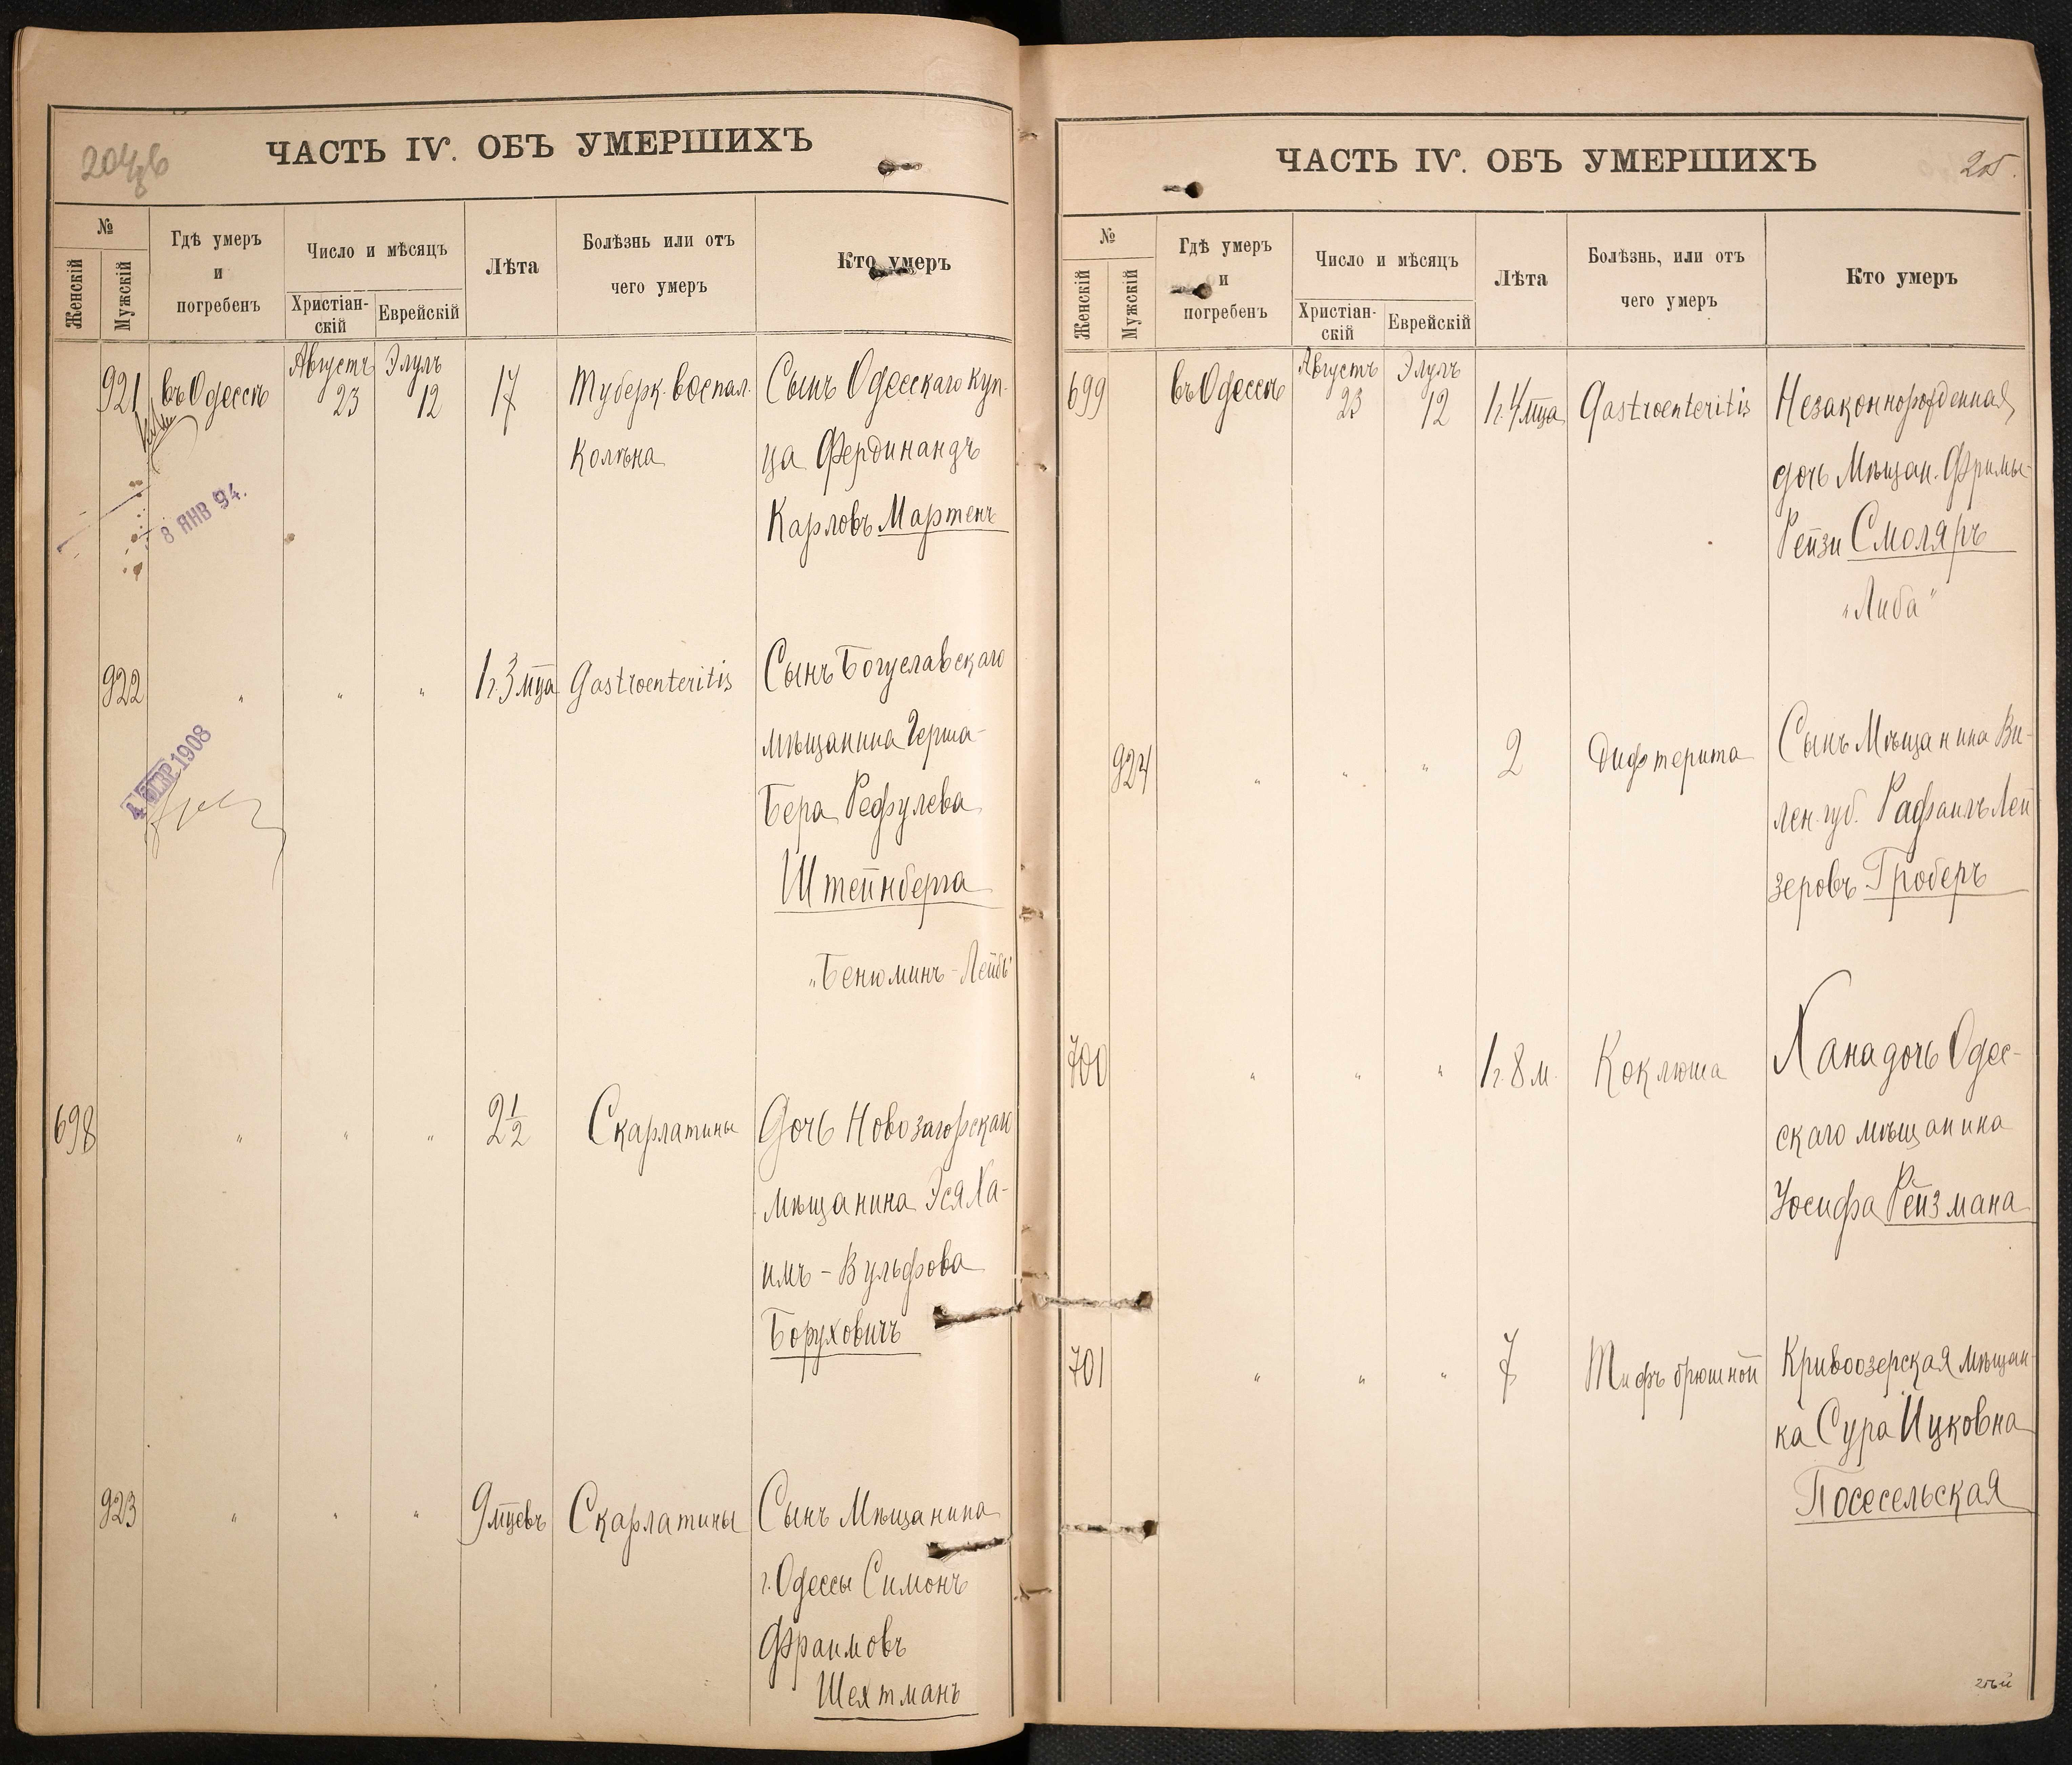 204/6
ЧАСТЬ IV. ОБЪ УМЕРШИХЪ
№
Женскій
Мужскій
Гдѣ умеръ
и
погребенъ
Число и мѣсяцъ
Христіан-
скій
Еврейскій
Лѣта
Болѣзнь или отъ
чего умеръ
Кто умеръ
921 въ Одессѣ Августъ 23 Элулъ 12 17 Туберк. воспал. Сынъ Одесскаго куп-
колѣна ца Фердинандъ
Карловъ Мартенъ
8 ЯНВ 94.
922 " " " 1 г. 3 мца Gastroenteritis Сынъ Богуславскаго
мѣщанина Герша-
Бера Рефулева
Штейнберга
„Бенюминъ-Лейбъ"
4 ФЕВР 1908
698 " " " 2 1/2 Скарлатины Дочь Новозагорскаго
мѣщанина Эся Ха-
имъ-Вульфова
Боруховичъ
923 " " " 9 мцевъ Скарлатины Сынъ Мѣщанина
г. Одессы Симонъ
Фраимовъ
Шехтманъ
ЧАСТЬ IV. ОБЪ УМЕРШИХЪ
№
Женскій
Мужскій
Гдѣ умеръ
и
погребенъ
Число и мѣсяцъ
Христіан-
скій
Еврейскій
Лѣта
Болѣзнь, или отъ
чего умеръ
Кто умеръ
699 въ Одессѣ Августъ 23 Элулъ 12 1 г. 4 мца Gastroenteritis Незаконнорожденная
дочь Мѣщан. Фримы-
Рейзи Смоляръ
„Либа"
924 " " " 2 Дифтерита Сынъ Мѣщанина Ви-
лен. губ. Рафаилъ Лей
зеровъ Гроберъ
700 " " " 1 г. 8 м. Коклюша Хана дочь Одес-
скаго мѣщанина
Іосифа Рейзмана
701 " " " 7 Тифъ брюшной Кривоозерская мѣщан-
ка Сура Ицковна
Посесельская